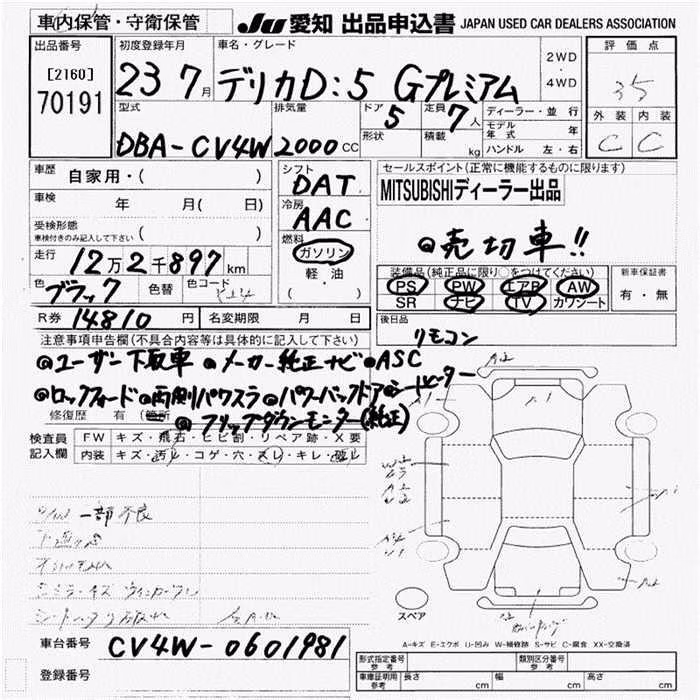 車内保管・守衛保管 JU 愛知 出品申込書 JAPAN USED CAR DEALERS ASSOCIATION
出品番号 初度登録年月 車名・グレード 2WD 評価点
[2160] 23 7月 デリカD:5 Gプレミアム ・ 35
70191 4WD
型式 排気量 ドア 5 定員 7人 ディーラー・並行 外装 内装
モデル年式 年
DBA-CV4W 2000cc 形状 積載 kg ハンドル 左・右 C C
車歴 自家用・( ) シフト DAT セールスポイント(正常に機能するものに限ります)
MITSUBISHIディーラー出品
車検 年 月( 日) 冷房 AAC
受検形態 ( )
車検付きのみ記入して下さい
燃料 ガソリン ◎売切車!!
走行 12万2千897km 軽・油 装備品(純正品に限り○をつけてください) 新車保証書
色 ブラック 色替 色コード ・( ) PS PW エアB AW 有・無
SR ナビ TV カワシート
R券 14810円 名変期限 月 日 後日品
注意事項申告欄(不具合内容等は具体的に記入して下さい) リモコン
◎ユーザー下取車 ◎メーカー純正ナビ ◎ASC
◎ロックフォード ◎両側パワスラ ◎パワーバックドア ◎シートヒーター
修復歴 有 (箇所 ◎フリップダウンモニター(純正)
検査員 FW キズ・飛石・ヒビ割・リペア跡・X要
記入欄 内装 キズ・汚レ・コゲ・穴・スレ・キレ・破レ
一部不良
スペア
A-キズ E-エクボ U-凹み W-補修跡 S-サビ C-腐食 XX-交換済
車台番号 CV4W-0601981
登録番号
型式指定番号 参考 類別区分番号 参考
車庫証明用 参考 長さ cm 幅 cm 高さ cm